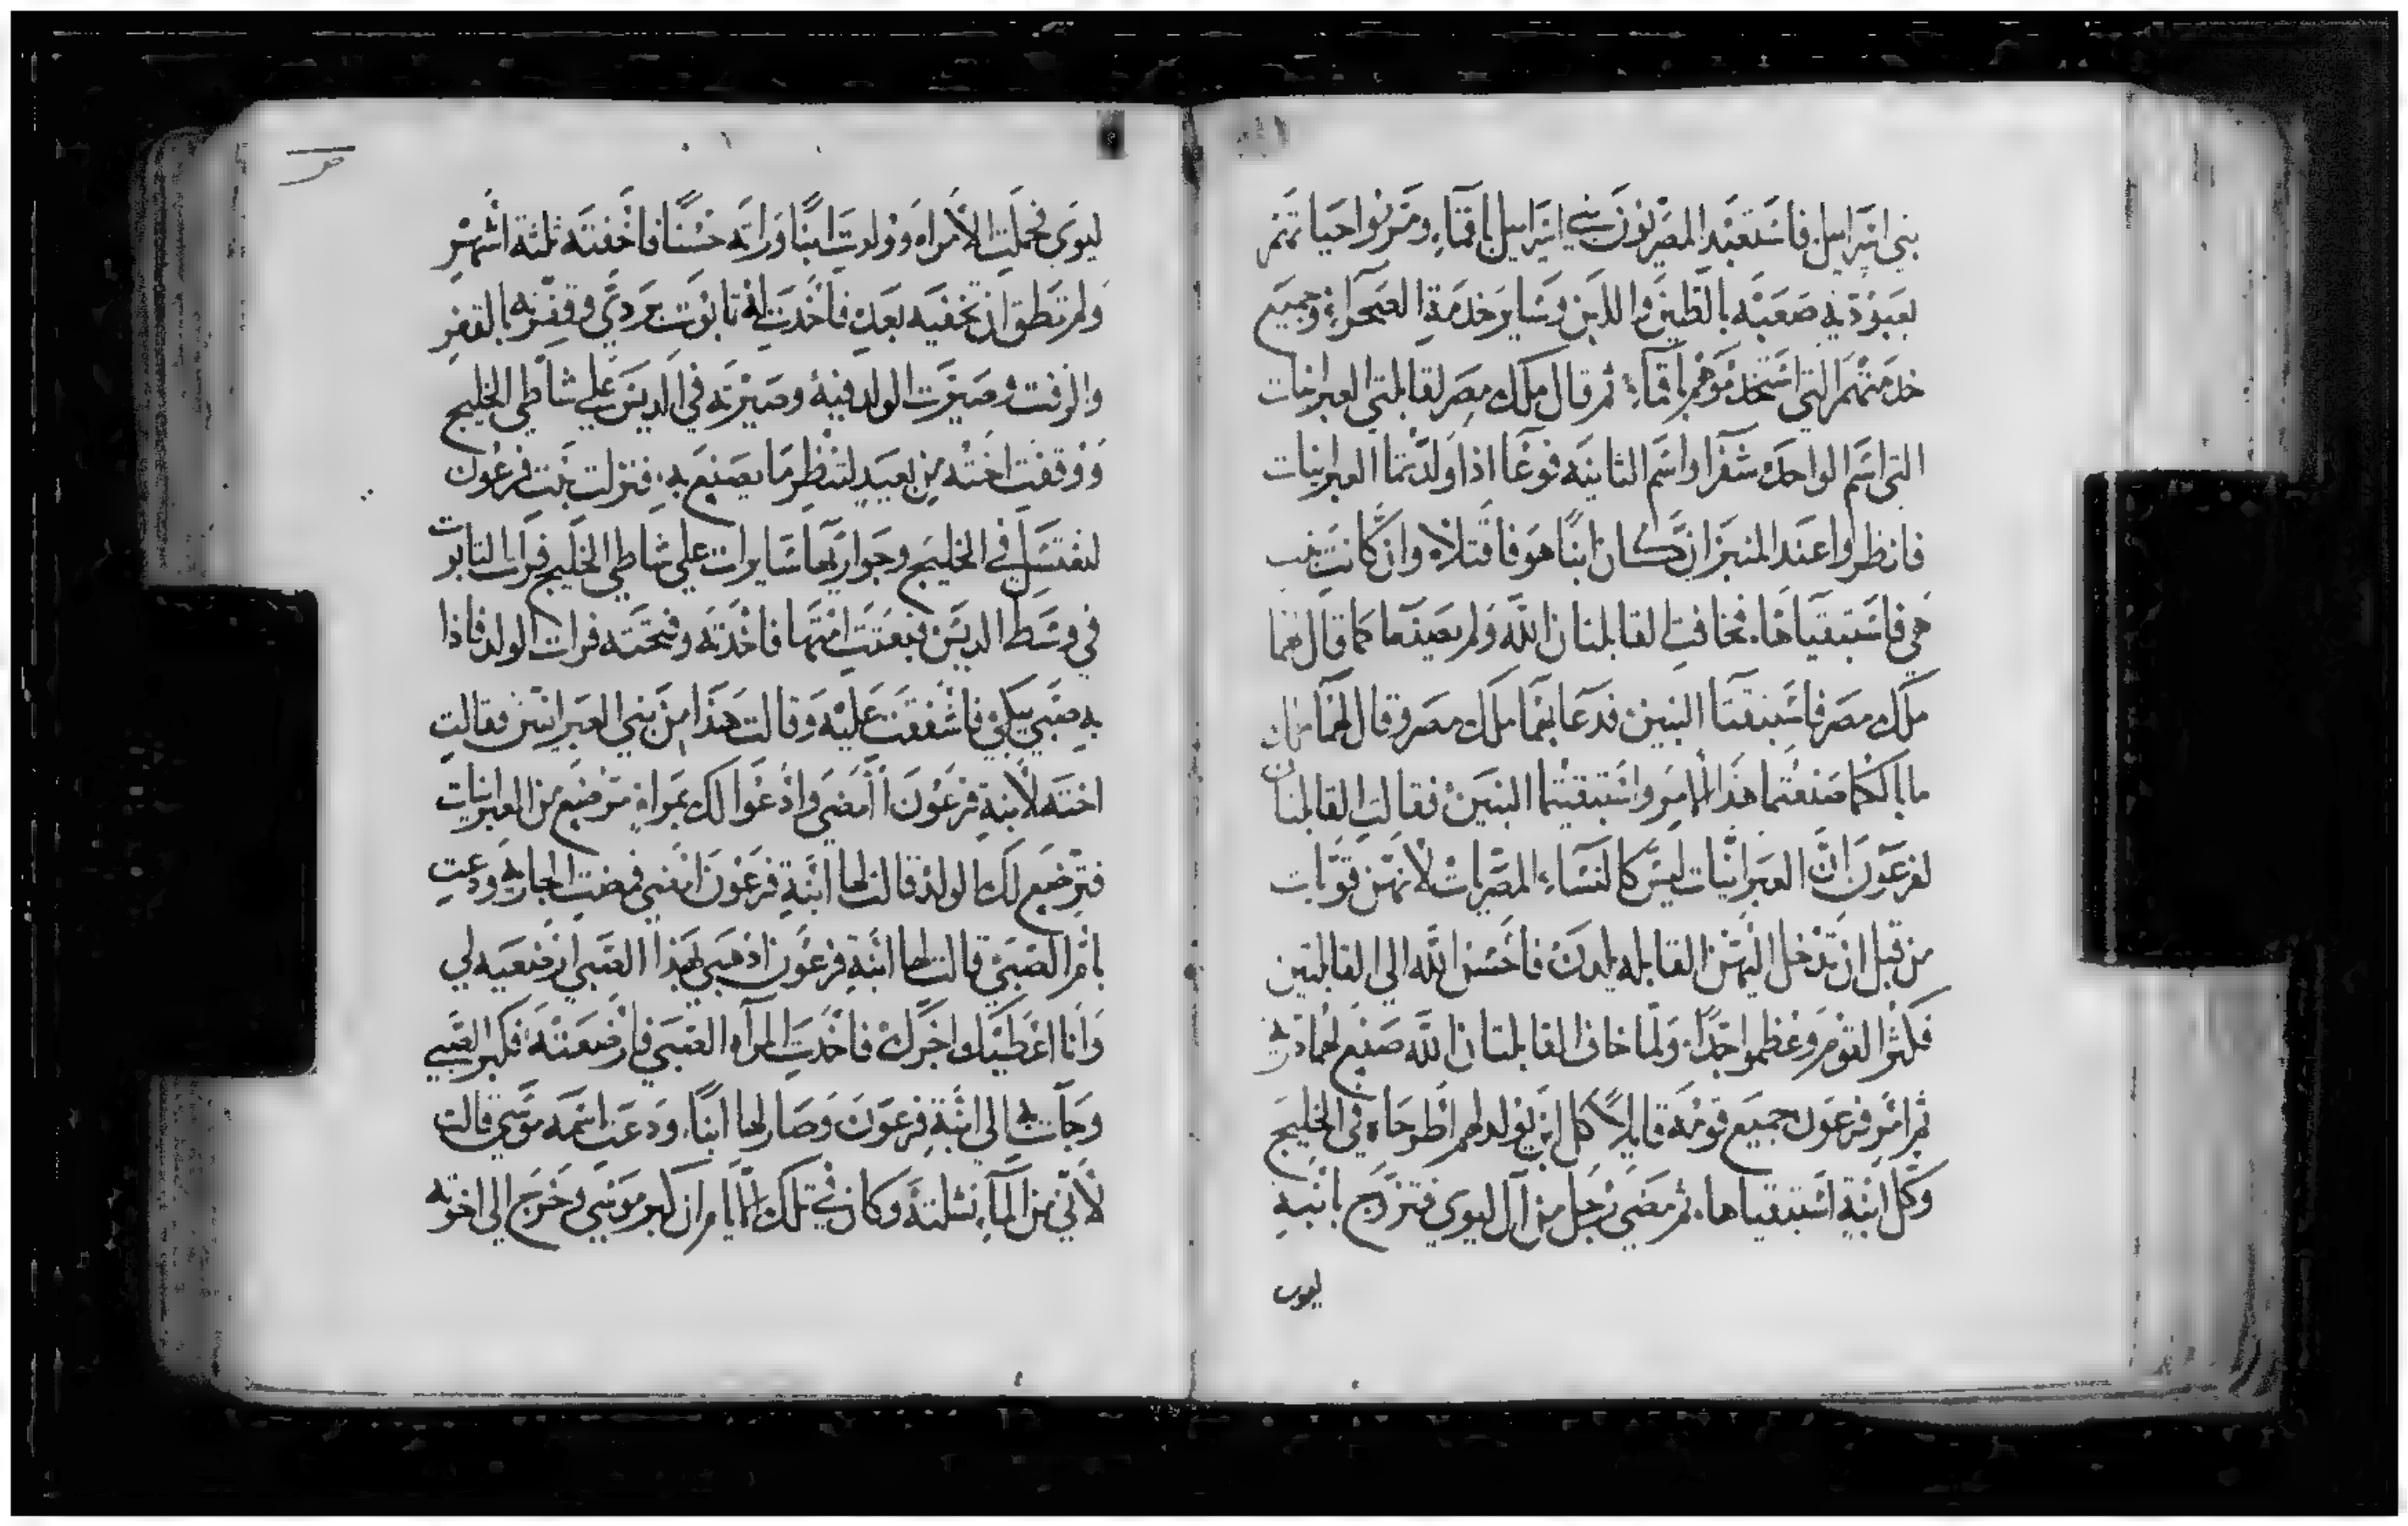 بني اسراييل فاستعبد المصريون بني اسراييل باقماء ومرروا حياتهم
بعبودية صعبه بالطين والدبن وساير خدمة الصحراء وجميع
خدمتهم التي استخدموهم باقماء ثم قال ملك مصر لقابلتي العبرانيات
التي اسم الواحده شفرا واسم الثانيه فوعا اذا ولدتما العبرانيات
فانظروا عند المنبر ان كان ابنا هو فاقتلاه وان كانت بنت
هي فاستبقياها فخافت القابلتان الله ولم يصنعا كما قال لهما
ملك مصر فاستبقتا البنين فدعا بهما ملك مصر وقال لهما
ما بالكما صنعتما هذا الامر واستبقيتما البنين فقالت القابلتان
لفرعون ان العبرانيات ليس كالنساء المصريات لانهن قويات
من قبل ان تدخل اليهن القابله يلدن فاحسن الله الي القابلتين
فكثر القوم وعظموا جدا ولما خاف القابلتان الله صنع لهما
ثم امر فرعون جميع قومه قايلا كل ابن يولد لهم اطرحاه في الخليج
وكل ابنة استبقياها ثم مضي رجل من آل ليوي فتزوج بابنة
ليوي
ليوي فحملت الامراه وولدت ابنا وراته حسنا فاخفته ثلثه اشهر
ولم تطق ان تخفيه بعد فاخذت له تابوت بردي وقفرته بالقفر
والزفت وصيرت الولد فيه وصيرته في الديس علي شاطي الخليج
ووقفت اخته من بعيد لتنظر ما يصنع به فنزلت بنت فرعون
لتغتسل في الخليج وجواريها سايرات علي شاطي الخليج فرات التابوت
في وسط الديس فبعثت امتها فاخذته وفتحته فرات الولد فاذا
به صبي يبكي فاشفقت عليه وقالت هذا من بني العبرانيين فقالت
اخته لابنة فرعون اامضي وادعوا لك بمراة مرضع من العبرانيات
فترضع لك الولد قالت لها ابنة فرعون امضي فمضت الجاريه ودعت
بام الصبي قالت لها ابنة فرعون اذهبي بهذا الصبي ارضعيه لي
وانا اعطيك اجرك فاخذت المرآه الصبي فارضعته فكبر الصبي
وجآت به الي ابنة فرعون وصار لها ابنا ودعت اسمه موسي قالت
لاني من المآء نشلته وكان في تلك الايام ان كبر موسي وخرج الي اخوته